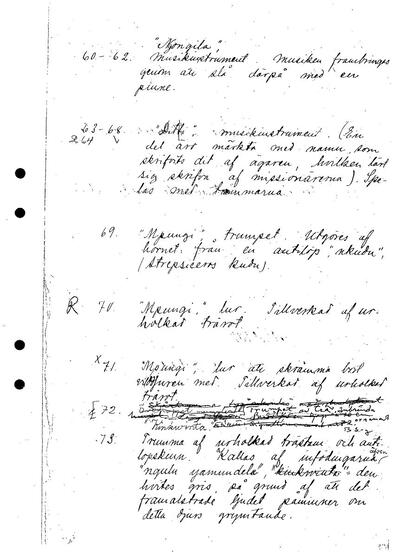 "Ngongila",
60-62. Musikinstrument. Musiken frambringes
genom att slå därpå med en
pinne.
63-68. "Ditti", musikinstrument. (En
64
del äro märkta med namn som
skrifvits dit af ägaren, hvilken lärt
sig skrifva af missionärerna). Spe-
las med tummarna.
69. "Mpungi", trumpet. Utgöres af
hornet från en antilop, "nkudu",
(Strepsiceros kudu).
R 70. "Mpungi", lur. Tillverkad af ur-
holkad trärot.
x 71. "Mpungi", lur att skrämma bort
vilddjuren med. Tillverkad af urholkad
trärot.
72.
73. Trumma af urholkad trästam och anti-
lopskinn. Kallas af infödingarna, äfven
"ngulu yamundela" = den
hvites gris, på grund af att det
framalstrade ljudet påminner om
detta djurs grymtande.